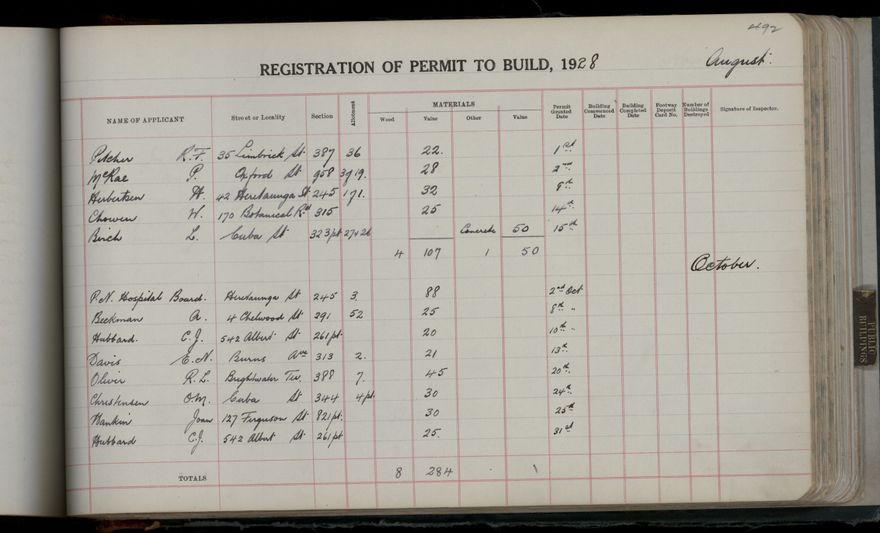 492
REGISTRATION OF PERMIT TO BUILD, 1928 August.
NAME OF APPLICANT Street or Locality Section Allotment MATERIALS Wood Value Other Value Permit Granted Date Building Commenced Date Building Completed Date Footway Deposit Card No. Number of Buildings Destroyed Signature of Inspector.
Pitcher R.F. 35 Limbrick St 387 36 22. 1st
McRae P. Oxford St 958 28 2nd
Herbertsen H. 42 Heretaunga St 245 171. 32 8th
Chowen W. 170 Botanical Rd 315 25 14th
Birch L. Cuba St 323pt Concrete 50 15th
4 107 1 50
October.
P.N. Hospital Board. Heretaunga St 245 3. 88 2nd Oct
Beckman A. 4 Chelwood St 291 52 25 8th "
Hubbard. C.J. 542 Albert St 261pt. 20 10th "
Davis E.N. Burns Ave 313 2. 21 13th
Oliver R.L. Brightwater Ter. 388 7. 45 20th
Christensen O.M. Cuba St 344 4pt. 30 24th
Hankin Joan 127 Ferguson St 821pt. 30 25th
Hubbard C.J. 542 Albert St 261pt 25. 31st
TOTALS 8 284
PUBLIC BUILDINGS